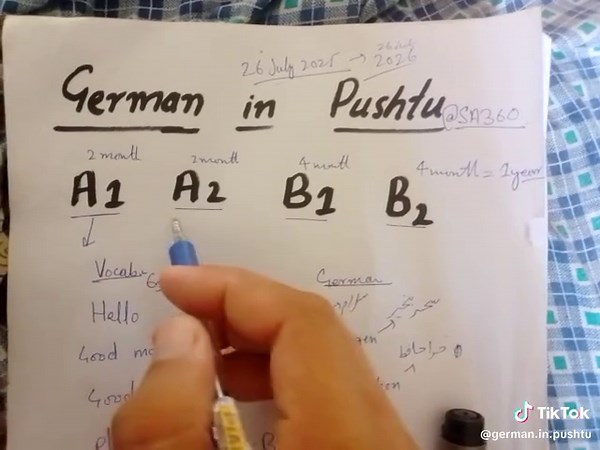 26 July 2025 → 26 July 2026
German in Pushtu @SA360
2 month 2 month 4 month 4 month = 1 year
A1 A2 B1 B2
Vocabu German
Hello
Good mo سحر بخیر
Good خداحافظ
TikTok
@german.in.pushtu